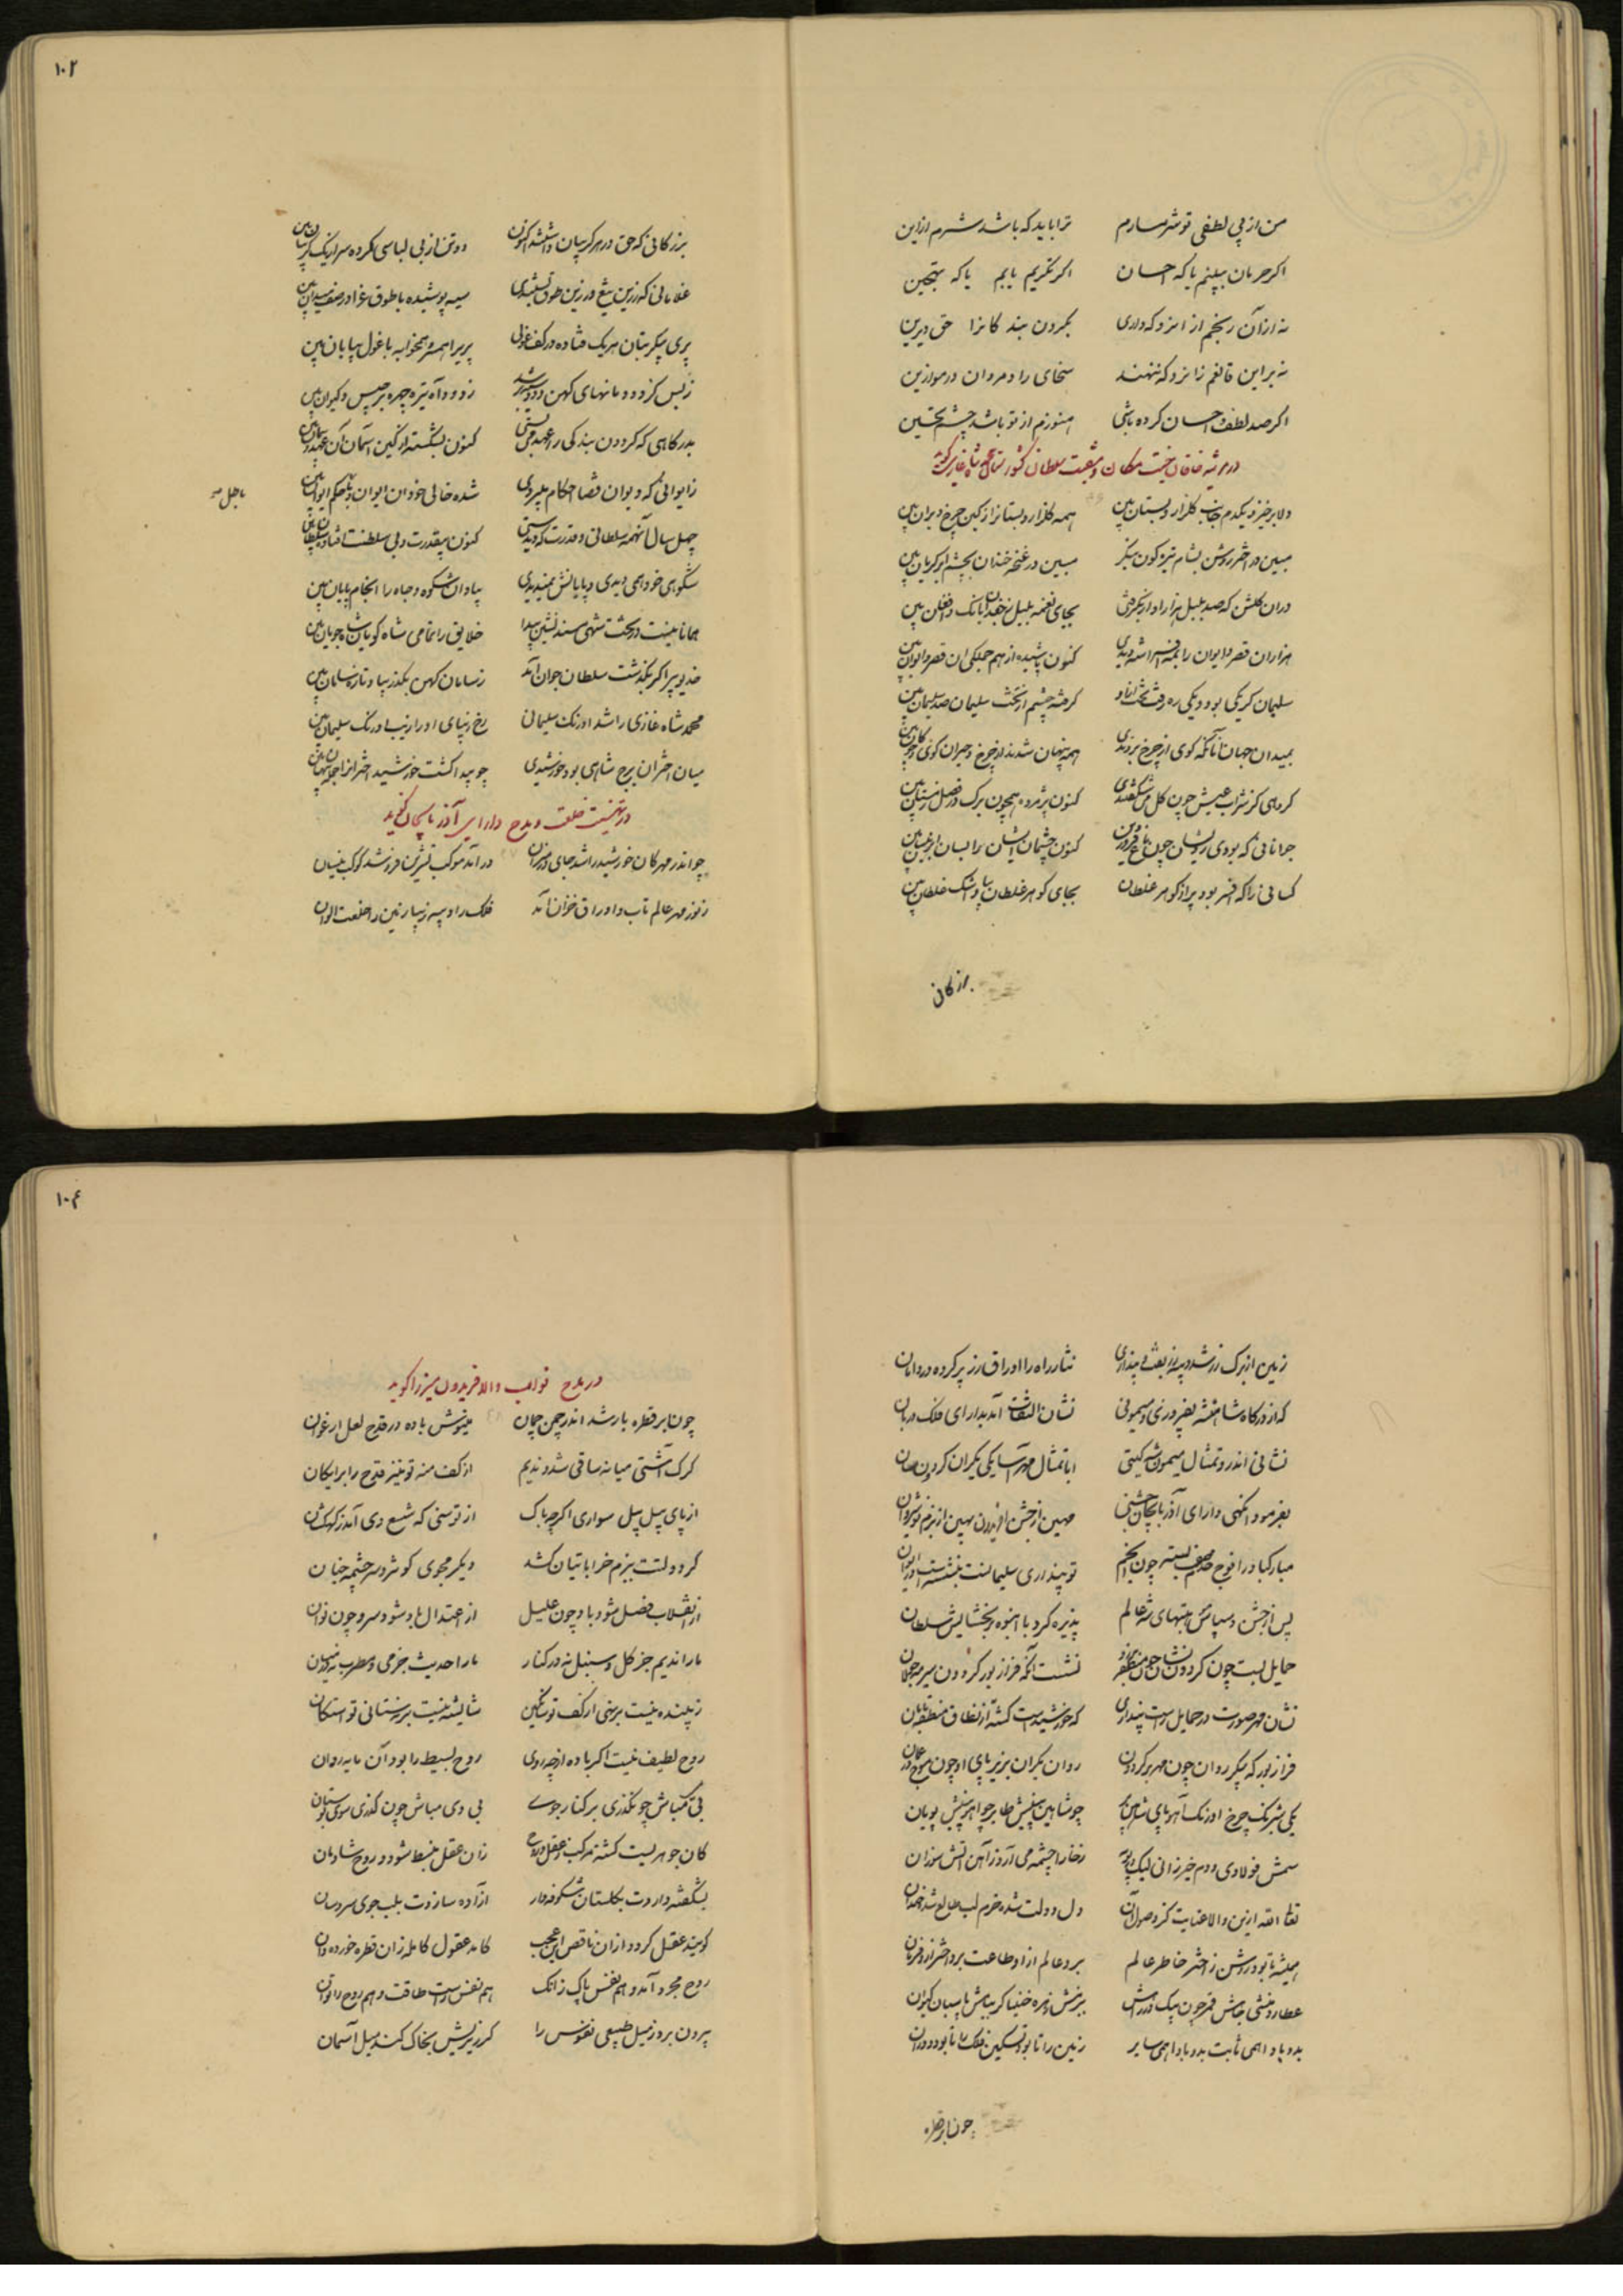 من از بی لطفی تو شرمسارم ترا باید که باشد شرم ازاین
اکر حرمان ببینم یا که احسان اکر تکریم یابم یا که تهجین
نه ازآن رنجم از ایزد که داری بکردن بند کانرا حق دیرین
نه براین قانعم زایزد که ننهند سخای راد مردان در موازین
اکر صد لطف و احسان کرده باشی هنوزم از تو باشد چشم تحسین
در مرثیه خاقان خلد مکان و منقبت سلطان کشورستان محمد شاه غازی کوید
دلا برخیز و یکدم جانب کلزار و بستان بین همه کلزار و بستانرا زکین چرخ ویران بین
مبین در اختر روشن بشام تیره کون بنکر مبین در غنچه خندان بچشم ابر کریان بین
دران کلشن که صد بلبل هزار آواز بجای نغمه بلبل بانک و افغان بین
هزاران قصر و ایوان را بمه افراشته دیدی کنون پاشیده از هم جملکی ان قصر و ایوان بین
سلیمان کر یکی بود و یکی ره رفت تخت از باد کر چشم از تخت سلیمان صد سلیمان بین
بمیدان جهان آنانکه کوی از چرخ بردندی همه پنهان شدند از چرخ و جبران کوی و چوکان بین
کروهی کز شراب عیش چون کل می شکفتندی کنون پژمرده همچون برک در فصل زمستان بین
جوانانی که بودی رویشان چون باغ فروردین کنون چشمان ایشان را بسان ابر نیسان بین
کسانی را که افسر بود پر از کوهر غلطان بجای کوهر غلطان بیا و اشک غلطان بین
بزرکان
۱۰۳
بزرکانی که حق در هر کریبان داشتند اکنون دو تن از بی لباسی کرده سر از یک کریبان بین
غلامانی که زرین تیغ و زرین طوق بستندی سیه پوشیده با طوق عزا در صف میدان بین
پری پیکر بتان هر یک فتاده در کف غولی پریرا همسر و همخوابه با غول بیابان بین
زبس کز دودمانهای کهن دود رشد ز دود آه تیره چهره برجیس و کیوان بین
بدرکاهی که کردون بندکی را عهد می بستی کنون بشکسته از کین آسمان آن عهد و پیمان بین
ز ایوانی که دیوان قضا احکام میبردی شده خالی خود ان ایوان و بی احکم ایوان بین
باطل
چهل سال آنهمه سلطانی و قدرت که دیدستی کنون بیقدرت و بی سلطنت افتاده سلطان بین
شکوهی خود همی دیدی و پایانش نمیدیدی بیا و ان شکوه و جاه را انجام پایان بین
همانا نیست در تخت شهی مسند نشین پیدا خلایق را تمامی شاه کویان شاه جویان بین
خدیو پیر اکر بگذشت سلطان جوان آمد ز سامان کهن بکذر بیا و تازه سامان بین
محمد شاه غازی را شد اورنک سلیمانی رخ زیبای او را زیب اورنک سلیمان بین
میان اختران برج شاهی بود خورشیدی چو پیدا کشت خورشید اخترانرا جمله پنهان بین
در تهنیت خلعت و مدح دارای آذربایجان کوید
چو اندر مهرکان خورشید را شد جای در میزان در آمد موکب تشرین فرو شد کوکب نیسان
ز نور مهر عالم تاب و اوراق خزان آمد فلک را دیبه زیبا زمین را خلعت الوان
زمین از برک زر شد دیبه زربفت پنداری نثار راه را اوراق زر پر کرده در دامان
که از درکاه شاهنشه بفیروزی و میمونی نشان التفات آمد بدارای فلک دربان
نشانی اندر و تمثال میمون شه کیتی ابا تمثال مهر آسا یکی یکران کردون سان
بفرمود انکهی دارای آذربایجان جشنی مهین از جشن افریدون بهین از بزم نوشروان
مبارکباد را افواج خدم صف بسته چون انجم تو پنداری سلیمانست بنشسته است در ایوان
پس از جشن و سپاس نعمتهای شه عالم پذیره کرد با انبوه بخشایش سلطان
حمایل بست چون کردون نشان نشست آنکه فراز بور کردون سیر مه جولان
نشان مهر صورت در حمایل راست پنداری که خورشیدست کشته از نطاق منطقه تابان
فراز بور که پیکر روان چون مهر بر کردون روان یکران بزیر پای او چون موج در عمان
یکی شبرنک چرخ اورنک آهو پای شاهین پر چو شاهین پیشش طایر چو آهو پیشش پویان
سمش فولادی و دم خیزرانی لیک در پویه ز خارا چشمه می آرد ز آهن آتش سوزان
تعالی الله ازین والا عنایت کز وصول آن دل دولت شده خرم لب طالع شده خندان
همیشه تا بود روشن ز اختر خاطر عالم برد عالم ازو طاعت برد اختر ازو فرمان
عطارد منشی خاصش قمر چون پیک درراهش ببزمش زهره خنیاکر ببامش پاسبان کیوان
بدو بادا همی ثابت بدو بادا همی سایر زمین را تا بود تسکین فلک را تا بود دوران
چون ابر قطره
۱۰۴
در مدح نواب والا فریدون میرزا کوید
چون ابر قطره بار شد اندر چمن چمان مینوش باده در قدح لعل ارغوان
کرک آشتی میانه ساقی شد و ندیم از کف منه تو نیز قدح را برایکان
از پای پیل پیل سواری اکر چه باک از توسنی که شیع دی آمد ز کهکشان
کر دولتت ببزم خراباتیان کشد دیگر مجوی کوثر و سرچشمه جنان
از انقلاب فصل شود باد چون علیل از اعتدال باد شود سرو چون نوان
ما را ندیم جز کل و سنبل نه در کنار ما را حدیث جز می و مطرب نه در میان
زیبنده نیست برنهی ار کف تو ساتکین شایسته نیست بر نستانی تو استکان
روح لطیف نیست اکر باده از چه روی روح بسیط را بود آن مایه روان
بی می مباش چو بگذری بر کنار جوی بی دی مباش چون کذری سوی بوستان
کان جوهریست کشته مرکب ز عقل و روح زان عقل منبسط شود و روح شادمان
بشکفته دارد ت بکلستان شکوفه وار آزاده سازدت بلب جوی سرو سان
کویند عقل کردد ازان ناقص ای عجب کامد عقول کامله زان قطره خورده دان
روح مجرد آمد و هم نفس پاک زانک هم نفس راست طاقت و هم روح را توان
بیرون برد ز میل طبیعی نفوس را کر زیریش بخاک کند میل آسمان